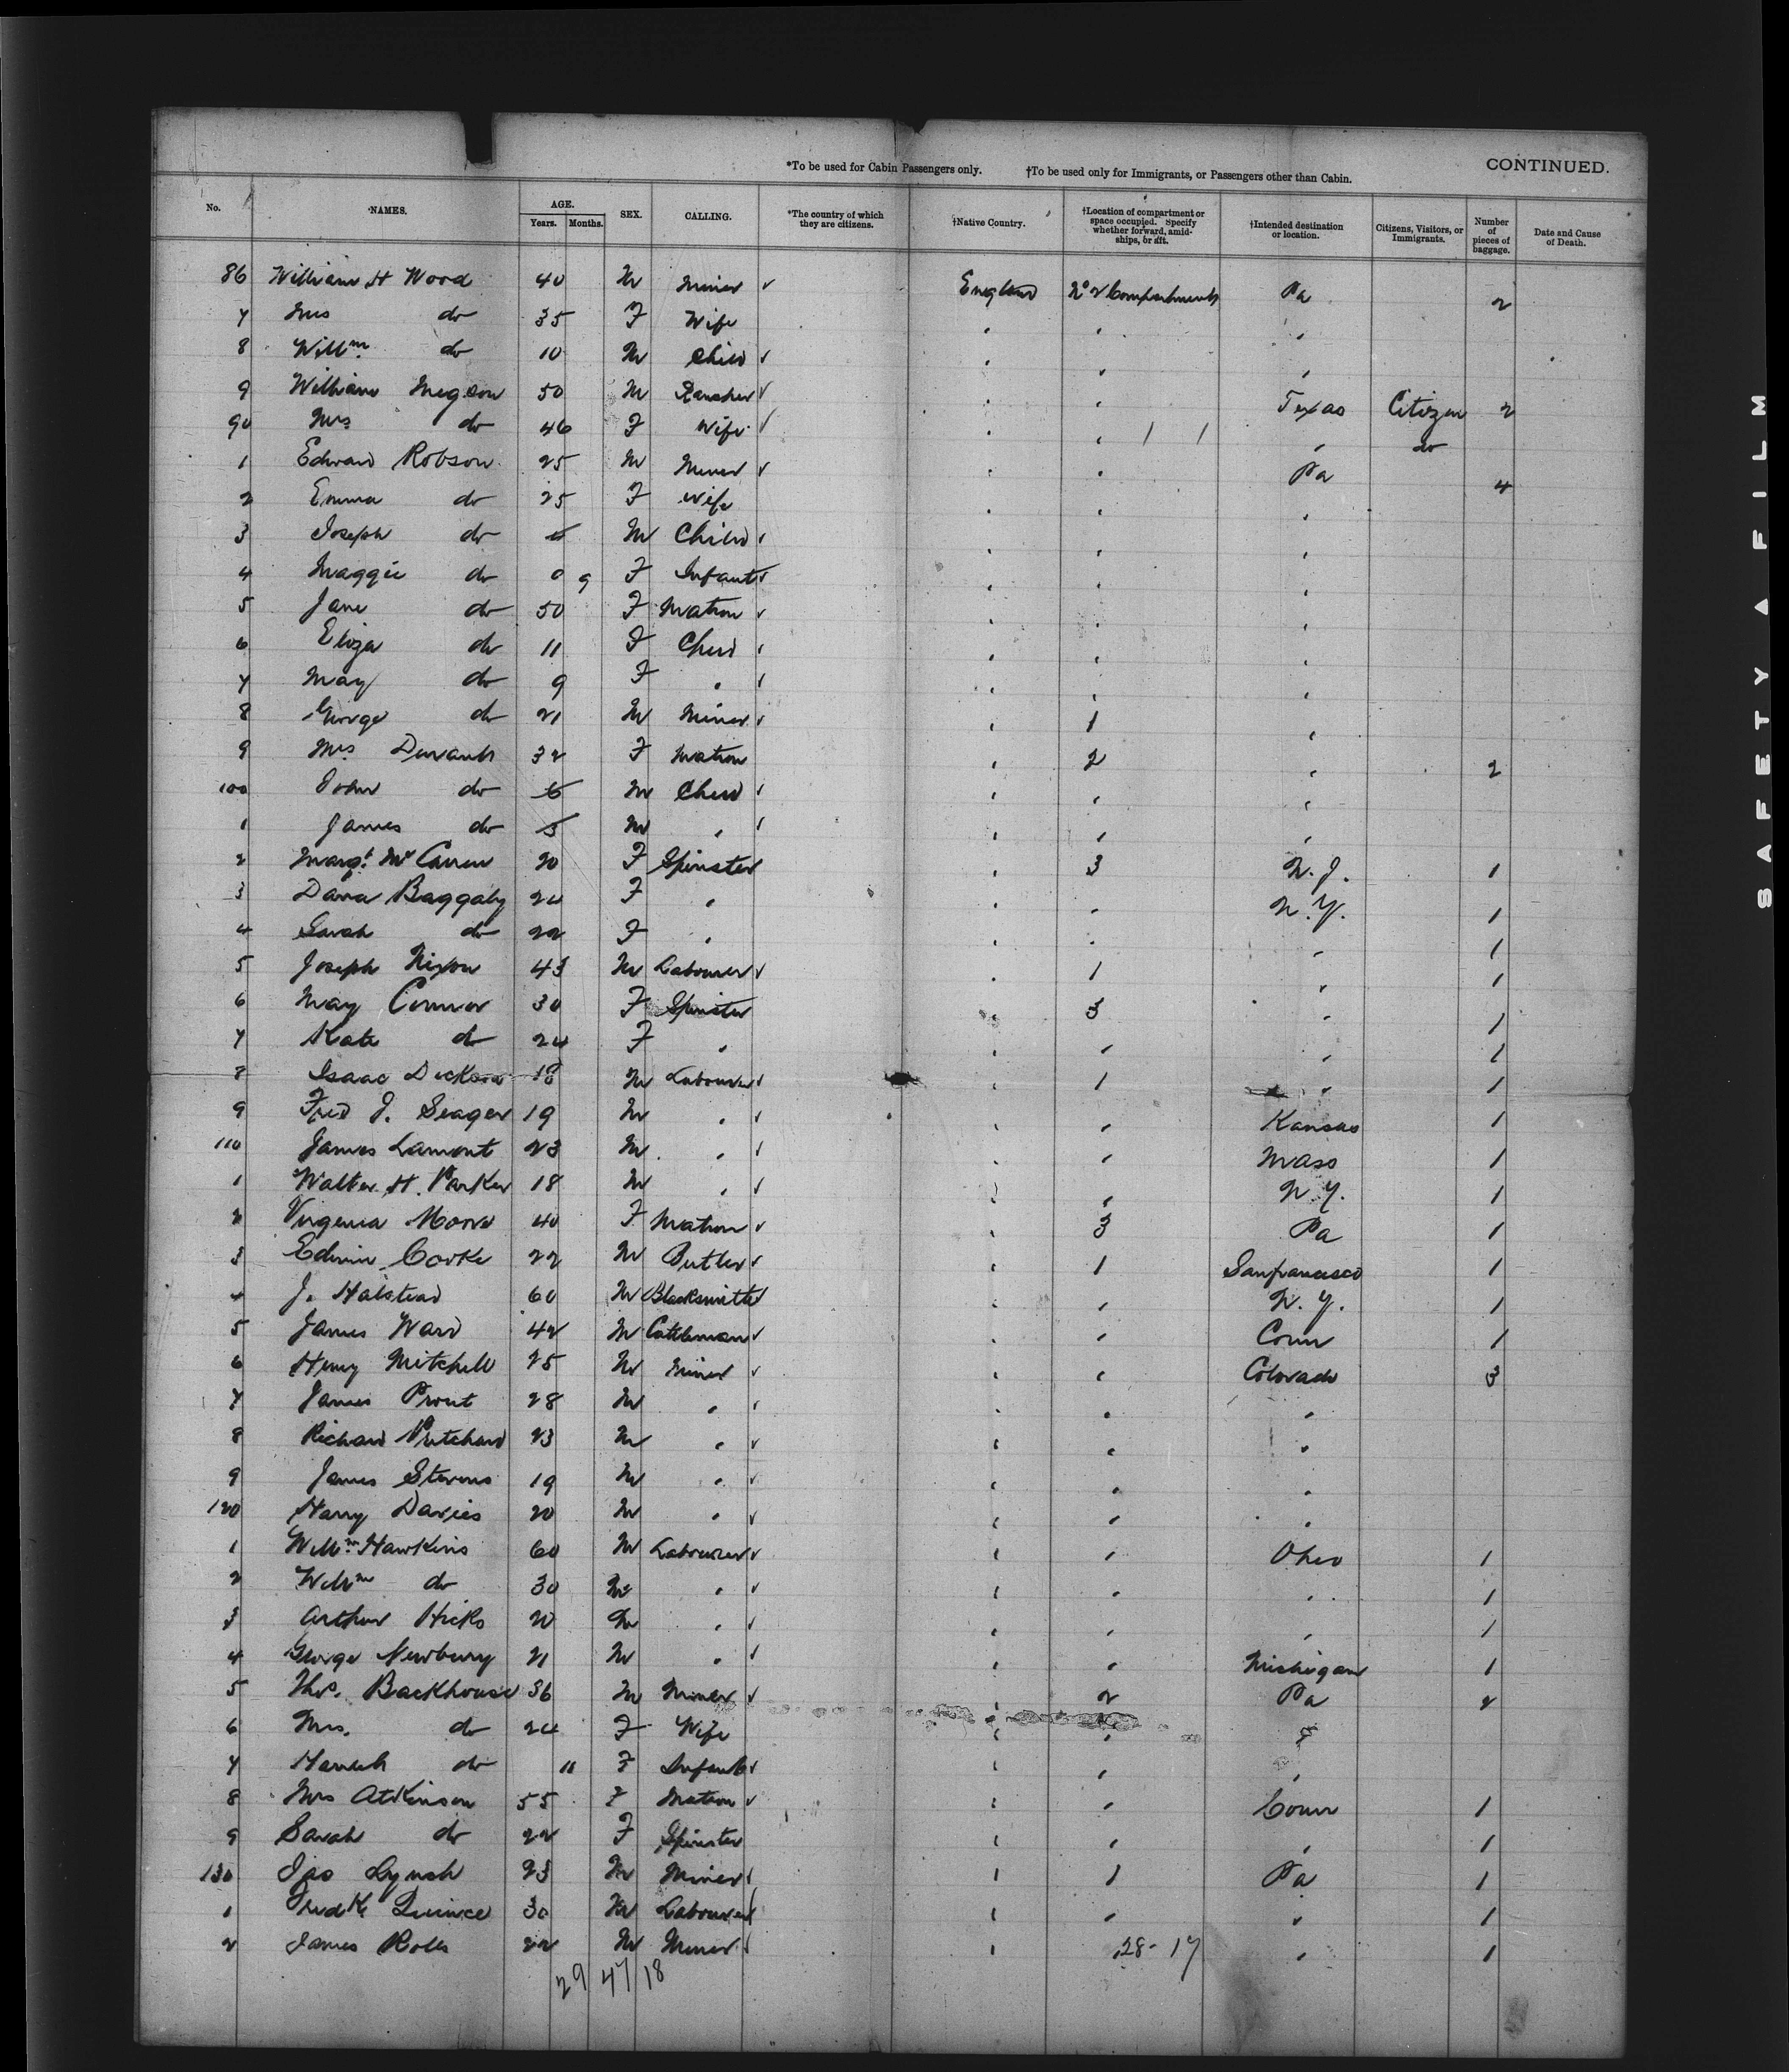 *To be used for Cabin Passengers only. †To be used only for Immigrants, or Passengers other than Cabin. CONTINUED.
No. NAMES. AGE. Years. Months. SEX. CALLING. *The country of which they are citizens. †Native Country. †Location of compartment or space occupied. Specify whether forward, amidships, or aft. †Intended destination or location. Citizens, Visitors, or Immigrants. Number of pieces of baggage. Date and Cause of Death.
86 William H Wood 40 M Miner ✓ England No 2 Compartment Pa 2
7 Mrs do 35 F Wife " " "
8 Willm do 10 M Child ✓ " " "
9 William Megson 50 M Rancher ✓ " " Texas Citizen 2
90 Mrs do 46 F Wife ✓ " " " do
1 Edward Robson 25 M Miner ✓ " " Pa 4
2 Emma do 25 F Wife " " "
3 Joseph do M Child ✓ " " "
4 Maggie do 0 9 F Infant ✓ " " "
5 Jane do 50 F Matron ✓ " " "
6 Eliza do 11 F Child ✓ " " "
7 May do 9 F " ✓ " " "
8 George do 21 M Miner ✓ " 1 "
9 Mrs 32 F Matron " 2 " 2
100 John do 6 M Child ✓ " " "
1 James do 3 M " ✓ " " "
2 Margt 20 F Spinster " 3 N. J. 1
3 Baggaly 24 F " " " N. Y. 1
4 Sarah do 22 F " " " " 1
5 Joseph Nixon 43 M Labourer ✓ " 1 " 1
6 May Connor 30 F Spinster " 3 " 1
7 Kate do 24 F " " " " 1
8 Isaac Dickson 18 M Labourer ✓ " 1 " 1
9 Fred J. Seager 19 M " ✓ " " Kansas 1
110 James Lamont 23 M " ✓ " " Mass 1
1 Walter H. Parker 18 M " ✓ " " N. Y. 1
2 Virginia Moore 40 F Matron ✓ " 3 Pa 1
3 Edwin Cooke 22 M Butler ✓ " 1 Sanfrancisco 1
4 J. Halstead 60 M Blacksmith " " N. Y. 1
5 James Ward 42 M Cattleman ✓ " " Conn 1
6 Henry Mitchell 25 M Miner ✓ " " Colorado 3
7 James Prout 28 M " ✓ " " "
8 Richard Pritchard 23 M " ✓ " " "
9 James Stevens 19 M " ✓ " " "
120 Harry Davies 20 M " ✓ " " "
1 Willm Hawkins 60 M Labourer ✓ " " Ohio 1
2 Willm do 30 M " ✓ " " " 1
3 Arthur Hicks 20 M " ✓ " " " 1
4 George Newbury 21 M " ✓ " " Michigan 1
5 Thos. Backhouse 36 M Miner ✓ " 2 Pa 2
6 Mrs. do 24 F Wife " " "
7 Hannah do 11 F Infant ✓ " " "
8 Mrs Atkinson 55 F Matron ✓ " " Conn 1
9 Sarah do 22 F Spinster " " " 1
130 Jas Lynch 23 M Miner ✓ " 1 Pa 1
1 Fredk Quince 30 M Labourer " " " 1
2 James 22 M Miner ✓ " " 1
28- 17
29 47 18
SAFETY A FILM